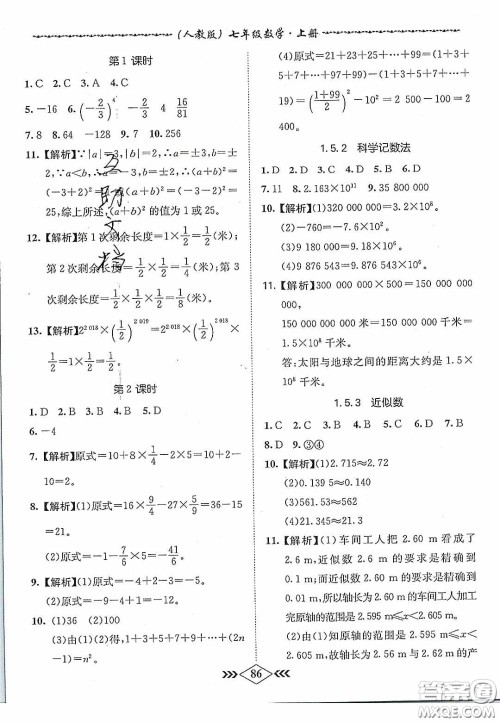 （人教版）七年级数学·上册
第1课时
1. C　2. C　3. A　4. C
5. －16　(－2/3)^4　－2/3　4　16/81
7. 8　8. 64　－128　9. 0　10. 5
11.【解析】∵|a|＝3,|b|＝2,∴a＝±3,b＝±
2,∵a＜b,∴a＝－3,b＝±2,∴(a＋b)²＝
(－3＋2)²＝1或(a＋b)²＝(－3－2)²＝
25,综上所述,(a＋b)²的值为1或25.
12.【解析】第1次剩余长度＝1×1/2＝1/2(米);
第2次剩余长度＝1/2×1/2＝1/4(米);第3
次剩余长度＝1/2×1/2×1/2＝1/8(米).
13.【解析】2^2018×(1/2)^2019＝2^2018×(1/2)^2018
×1/2＝1×1/2＝1/2.
第2课时
1. D　2. B　3. B　4. B　5. D
6. －4
7.【解析】原式＝10＋8×1/4－2×5＝10＋2－
10＝2.
8.【解析】(1)原式＝16×9/4－27×5/9＝36－15
＝21.
(2)原式＝－1－7/6×5＝－41/6.
9.【解析】原式＝－9－4＋1＝－12.
10. (1)36　(2)100
(3)由(1)(2)得,1＋3＋5＋7＋9＋…＋(2n
－1)＝n².
(4)原式＝21＋23＋25＋…＋99＝(1＋3＋
5＋7＋9＋…＋97＋99)－(1＋3＋5＋…＋
19)＝((1＋99)/2)²－10²＝2 500－100＝2 400.
1.5.2　科学记数法
1. D　2. C　3. C　4. C　5. A　6. B
7. 11　8. 2.163×10¹¹　9. 35 800 000
10.【解析】(1)320 000 000＝3.2×10⁸.
(2)－760＝－7.6×10².
(3)9 180 000＝9.18×10⁶.
(4)6 000 000＝6×10⁶.
11.【解析】300 000 000×500＝
150 000 000 000(米),
150 000 000 000米＝150 000 000千米＝
1.5×10⁸千米.
答:太阳与地球之间的距离大约是
1.5×10⁸千米.
1.5.3　近似数
1. C　2. C　3. A　4. B　5. A　6. C　7. C
8. D　9. ③④
10.【解析】(1)2.715≈2.72
(2)0.139 5≈0.140
(3)561.53≈562
11.【解析】(1)车间工人把2.60 m看成了
2.6 m,近似数2.6 m的要求是精确到
0.1 m;而近似数2.60 m的要求是精确到
0.01 m,所以轴长为2.60 m的车间工人加工
完原轴的范围是2.595 m≤x＜2.605 m.
(2)由(1)知原轴的范围是2.595 m≤x＜
2.605 m,故轴长为2.56 m与2.62 m的产
86
答案圈
MXQE.COM